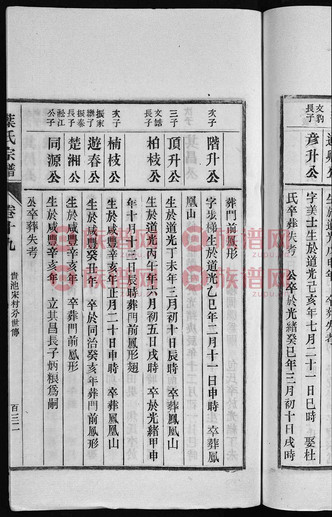 文豹
長子
彥升公
字美士生於道光己亥年七月二十一日巳時
氏卒葬失考 公卒於光緒癸巳年三月初十日戌時
葬門前鳳形
次子
階升公
字步梯生於道光乙巳年二月十一日申時 卒葬鳳
鳳山
三子
頂升公
生於道光丁未年三月初十日辰時 卒葬鳳凰山
文誌
次子
柏枝公
生於道光丙午年六月初五日戌時 卒於光緒甲申
年十月十三日辰時葬門前鳳形翅
次子
楠枝公
生於咸豐辛亥年正月二十日申時 卒葬鳳凰山
振家
長子
遊春公
生於咸豐癸丑年 卒於同治癸亥年葬門前鳳形
振泰
長子
楚湘公
生於咸豐辛亥年 卒葬門前鳳形
公子
同源公
生於咸豐辛亥年 立其昌長子炳根為嗣
公卒葬失考
葉氏宗譜
卷十九
貴池宋村分世傳
百三二